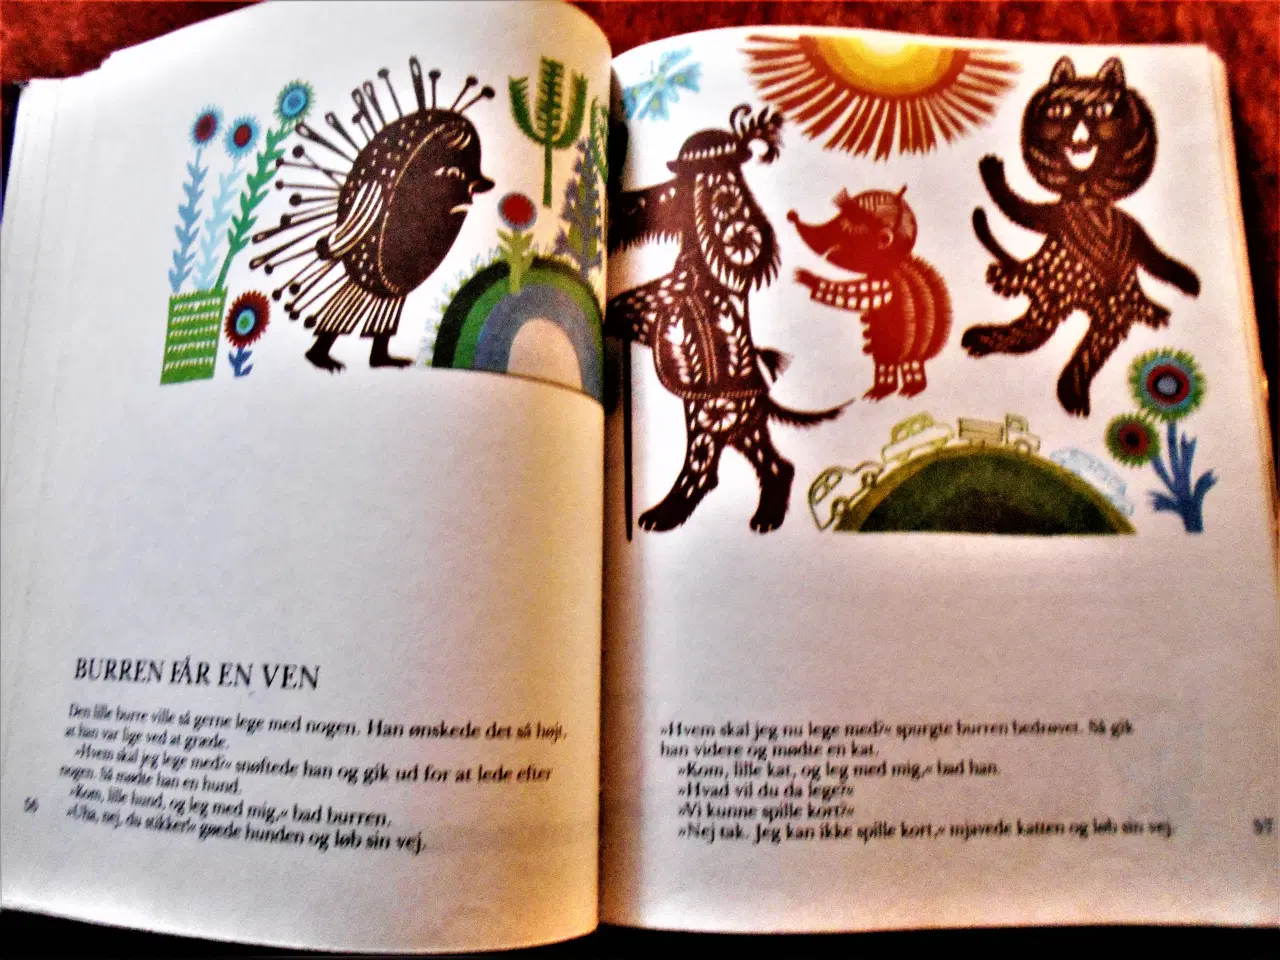 BURREN FÅR EN VEN
Den lille burre ville så gerne lege med nogen. Han ønskede det så højt,
at han var lige ved at græde.
»Hvem skal jeg lege med?« snøftede han og gik ud for at lede efter
nogen. Så mødte han en hund.
»Kom, lille hund, og leg med mig,« bad burren.
»Uha, nej, du stikker!« gøede hunden og løb sin vej.
56
»Hvem skal jeg nu lege med?« spurgte burren bedrøvet. Så gik
han videre og mødte en kat.
»Kom, lille kat, og leg med mig,« bad han.
»Hvad vil du da lege?«
»Vi kunne spille kort?«
»Nej tak. Jeg kan ikke spille kort,« mjavede katten og løb sin vej.
57